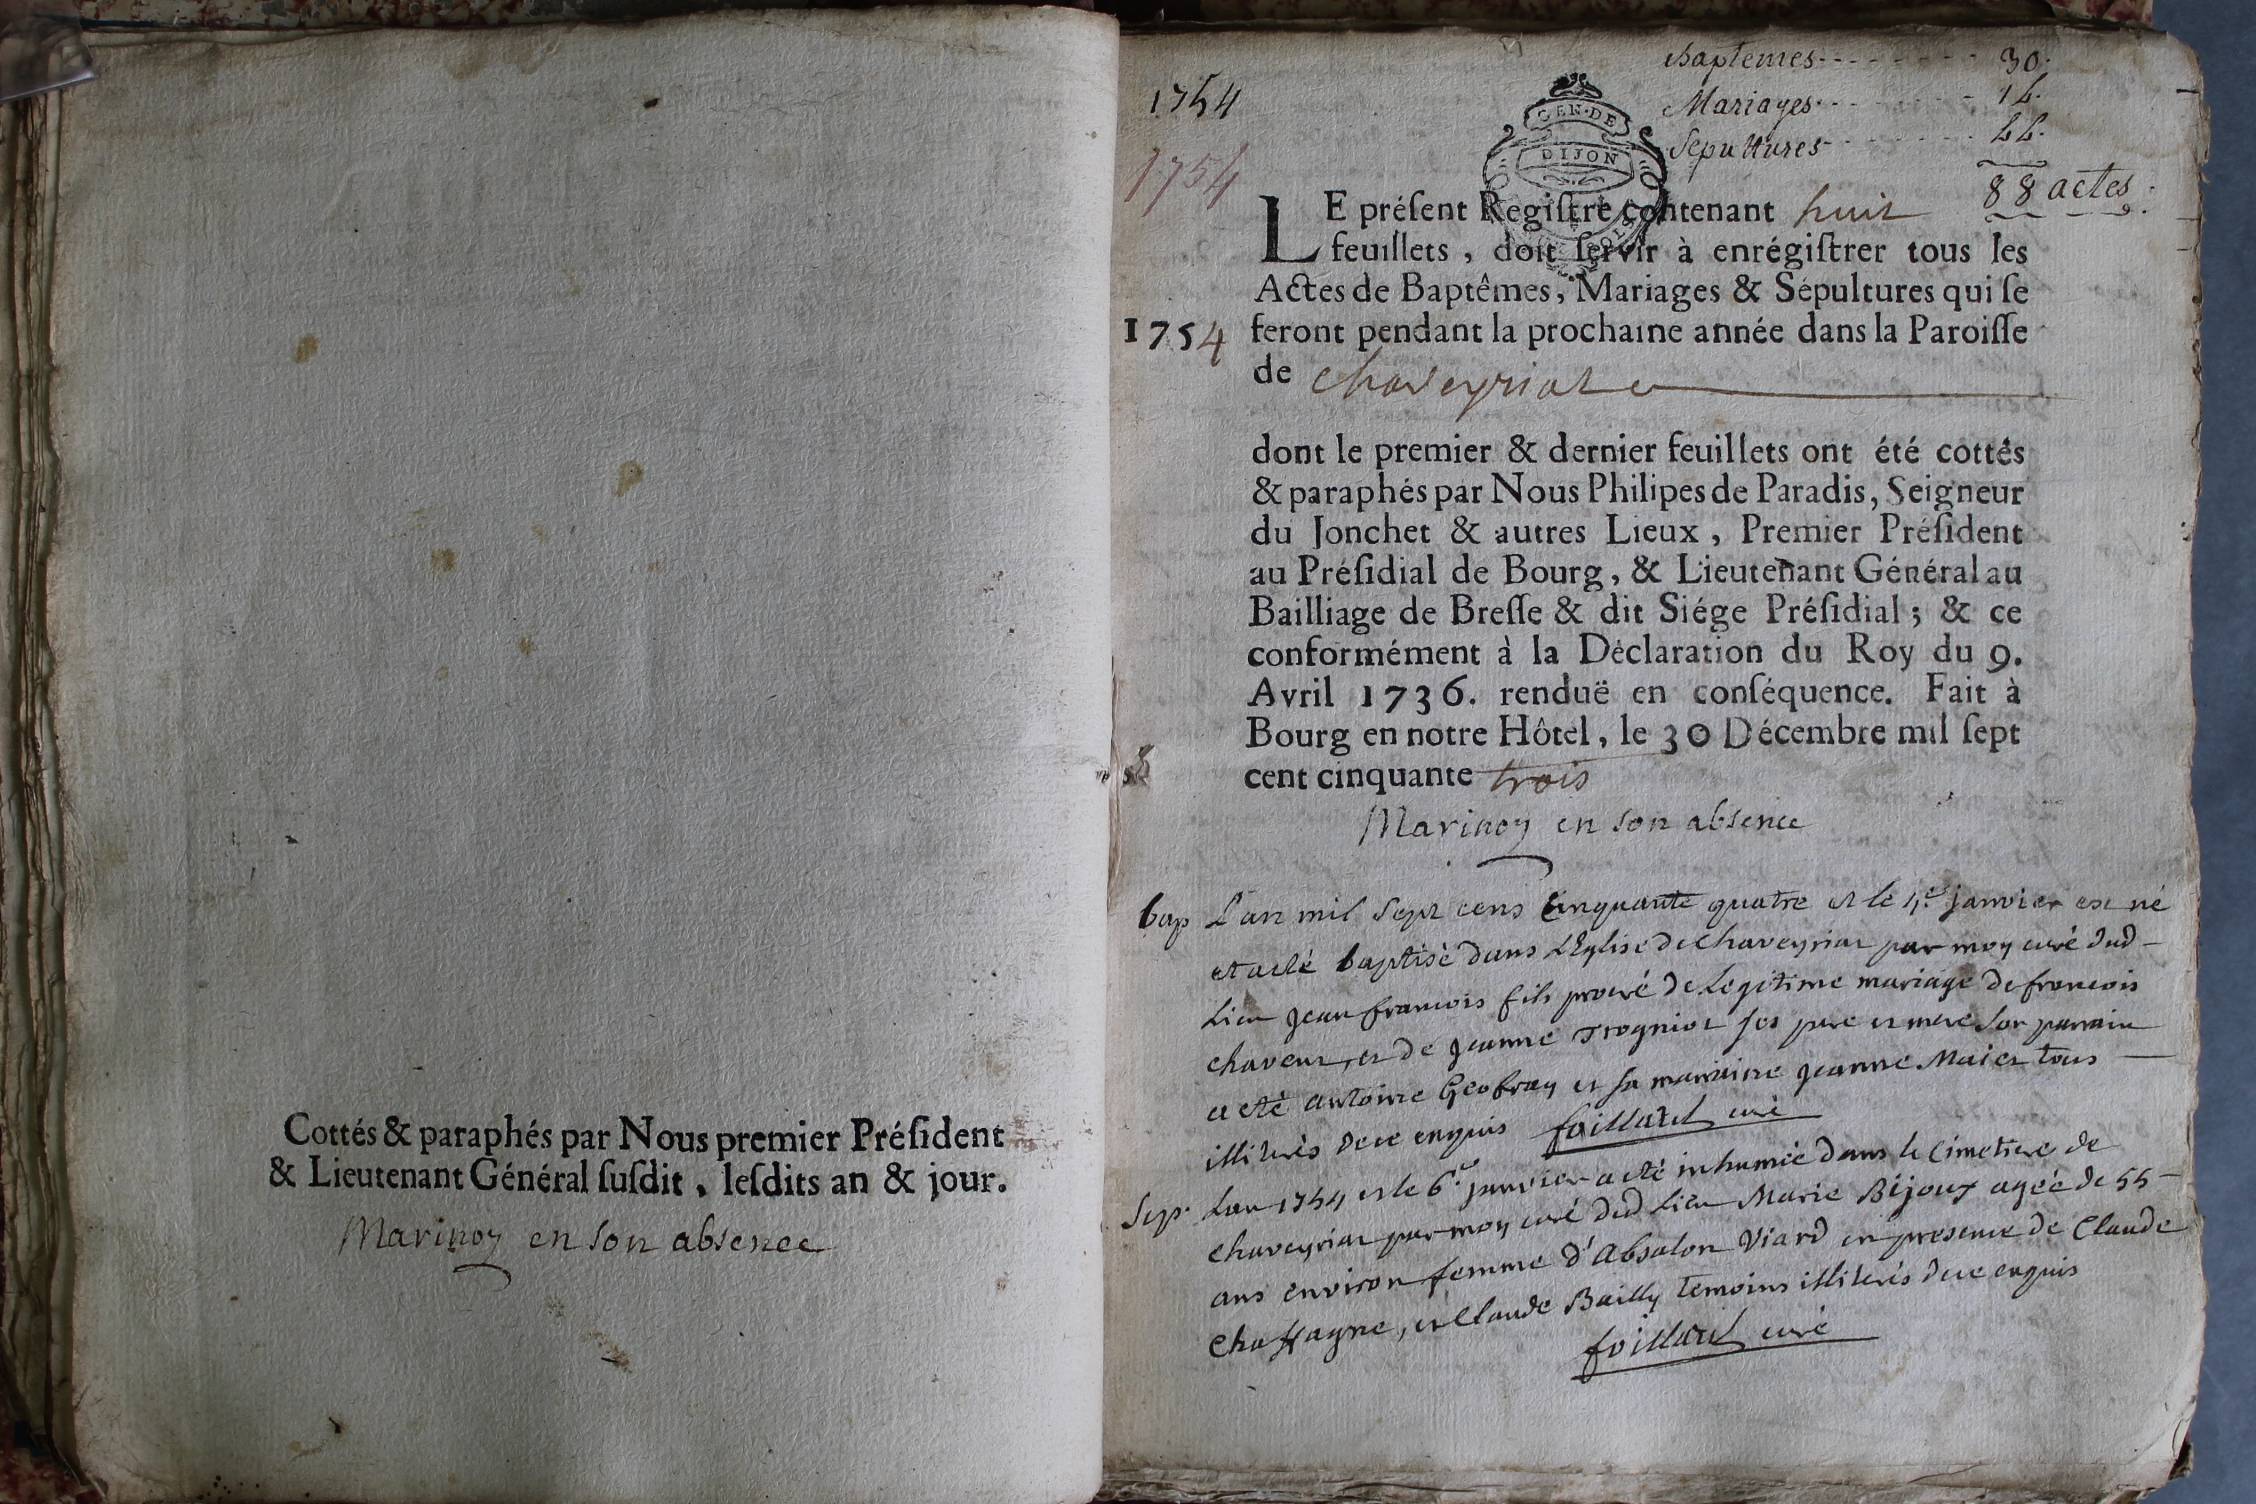 Cottés & paraphés par Nous premier Préſident
& Lieutenant Général ſuſdit, leſdits an & jour.
Marinoy en son absence
Baptemes - - - - - - - 30.
1754
Mariages - - - - - - 14.
Sepultures - - - - - - 44.
88 actes
1754
GEN·DE
DIJON
LE préſent Regiſtre contenant huit
feuillets, doit ſervir à enrégiſtrer tous les
Actes de Baptêmes, Mariages & Sépultures qui ſe
1754 feront pendant la prochaine année dans la Paroiſſe
de chaveyriat
dont le premier & dernier feuillets ont été cottés
& paraphés par Nous Philipes de Paradis, Seigneur
du Jonchet & autres Lieux, Premier Préſident
au Préſidial de Bourg, & Lieutenant Général au
Bailliage de Breſſe & dit Siége Préſidial; & ce
conformément à la Déclaration du Roy du 9.
Avril 1736. renduë en conſéquence. Fait à
Bourg en notre Hôtel, le 30 Décembre mil ſept
cent cinquante trois
Marinoy en son absence
bap L'an mil sept cens cinquante quatre et le 4e janvier est né
et a eté baptisé dans L'Eglise de Chaveyriat par moy curé dud
Lieu jean francois fils procréé de Legitime mariage de francois
chaveur, et de jeanne Trogniot ses pere et mere son parrain
a eté antoine Geofray et sa marraine jeanne Maier tous
illiterés de ce enquis foillard curé
Sep. Lan 1754 et le 6e janvier a eté inhumée dans le cimetiere de
chaveyriat par moy curé dud Lieu Marie Bijoux agée de 55
ans environ femme d'Absalon Viard en presence de Claude
Chaffagne, et Claude Bailly temoins illiterés de ce enquis
foillard curé